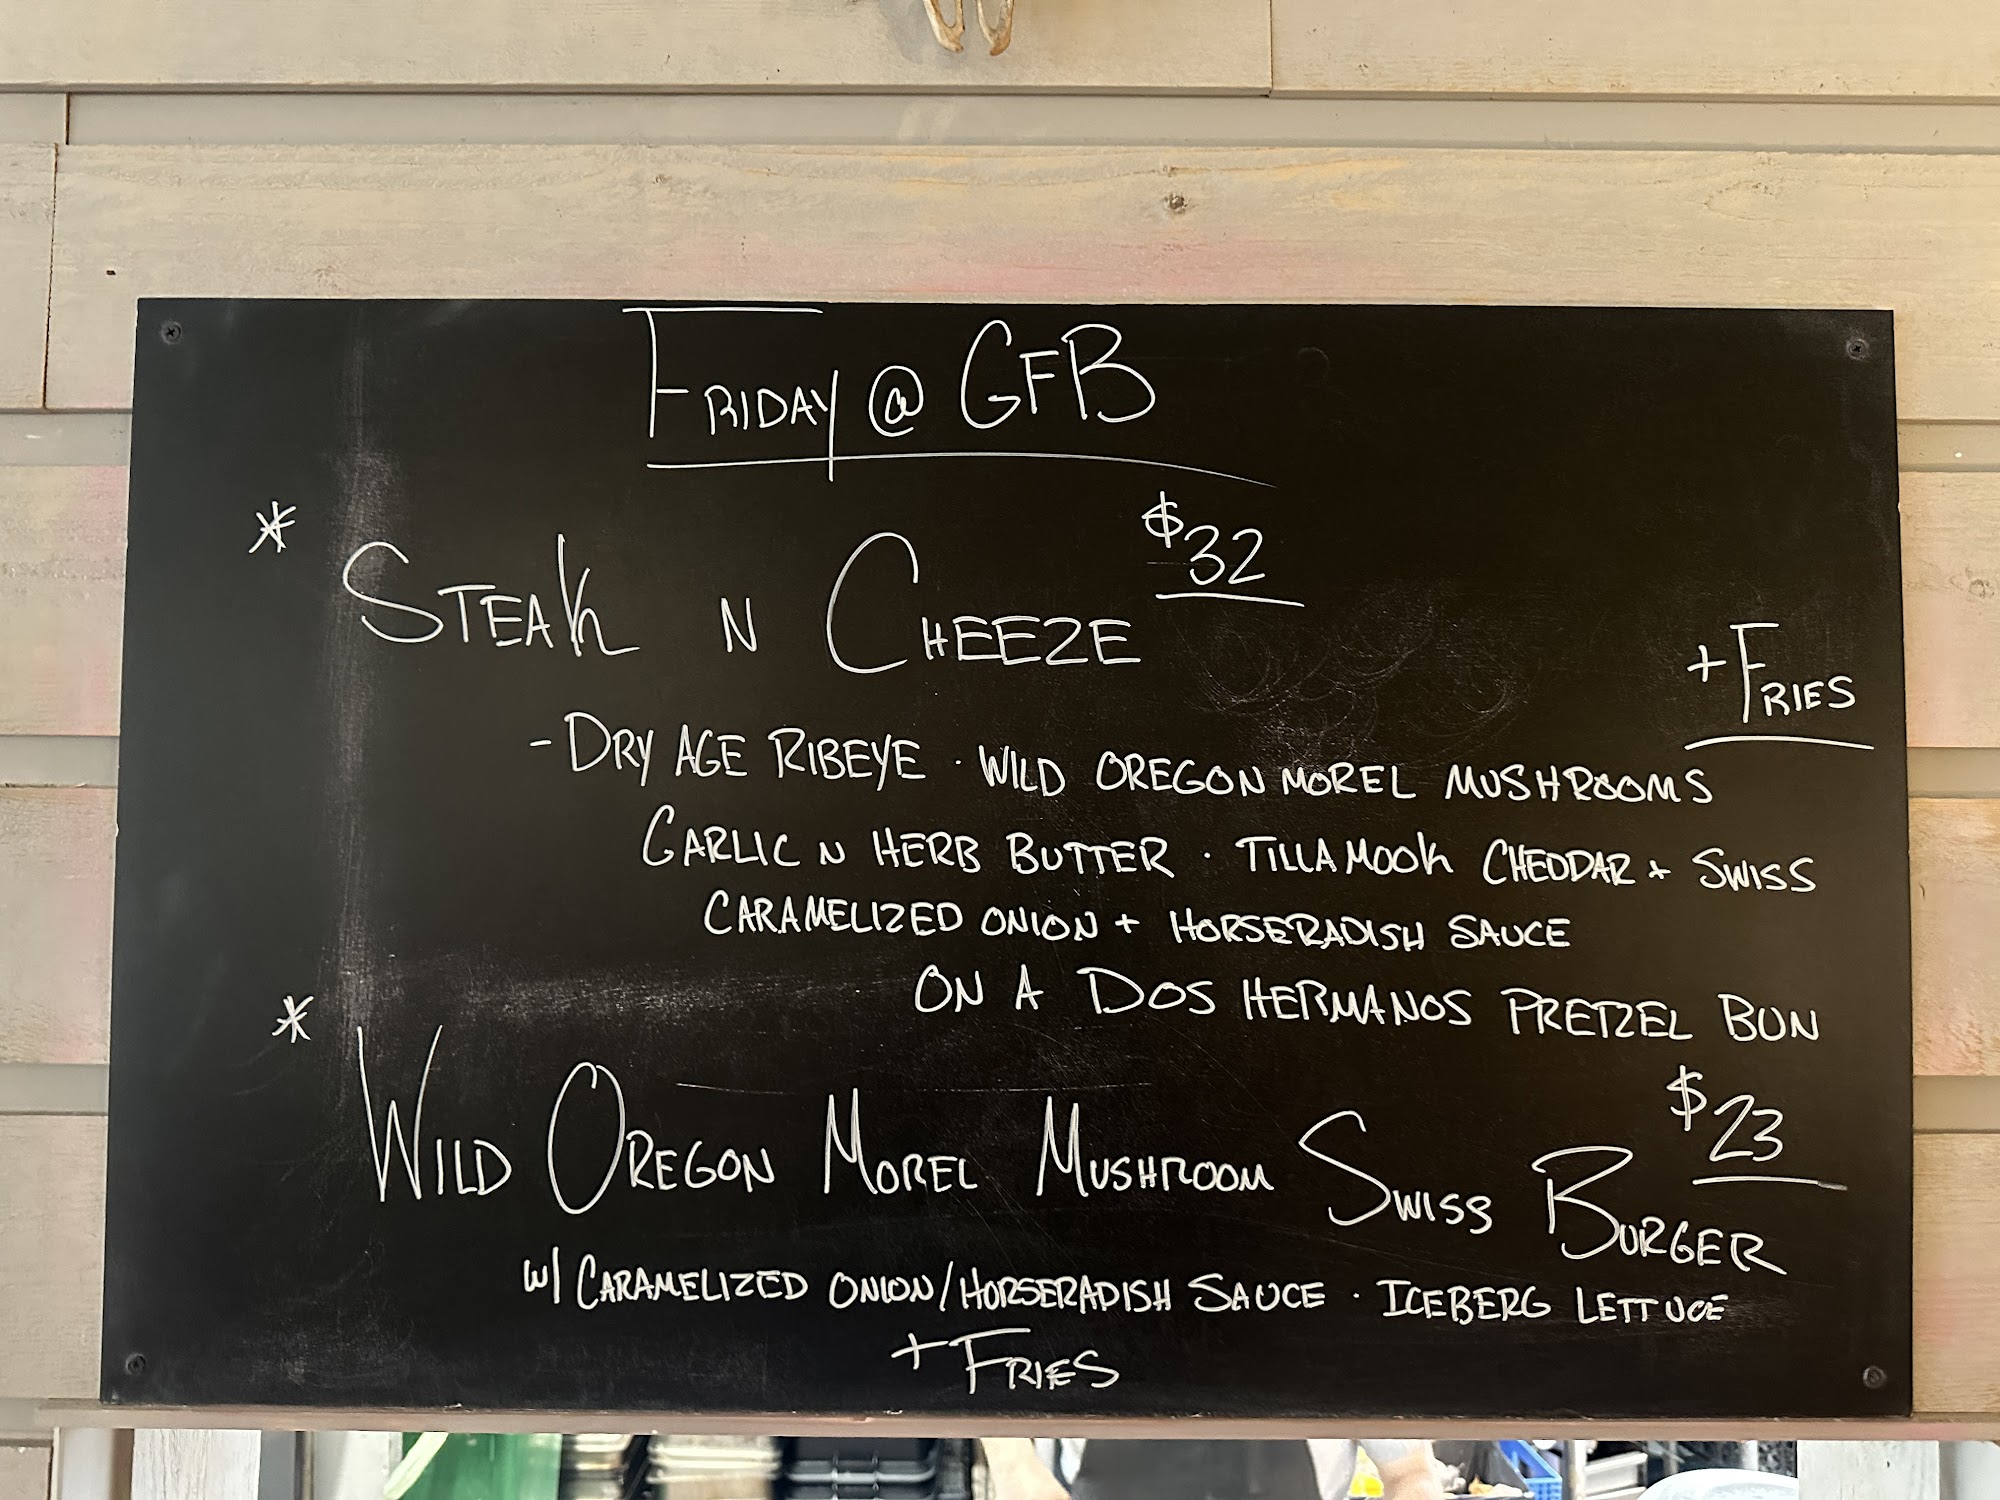 FRIDAY @ GFB
* STEAK N CHEEZE $32
+ FRIES
- DRY AGE RIBEYE · WILD OREGON MOREL MUSHROOMS
GARLIC N HERB BUTTER · TILLAMOOK CHEDDAR + SWISS
CARAMELIZED ONION + HORSERADISH SAUCE
ON A DOS HERMANOS PRETZEL BUN
* WILD OREGON MOREL MUSHROOM SWISS BURGER $23
W/ CARAMELIZED ONION/HORSERADISH SAUCE · ICEBERG LETTUCE
+ FRIES